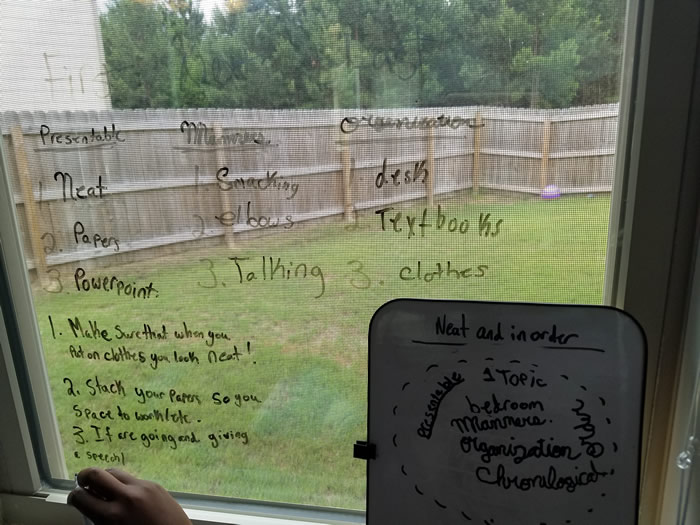 Presentable
Manners.
Organization
1. Neat
2. Papers
3. Powerpoint.
1. Smacking
2. elbows
3. Talking
1. desk
2. Textbooks
3. clothes
1. Make Sure that when you
Put on clothes you look neat!
2. Stack your Papers So you
Space to work/etc.
3. If are going and giving
a speech!
Neat and in order
Presentable
1 Topic
bedroom
Manners.
Organization
Chronological